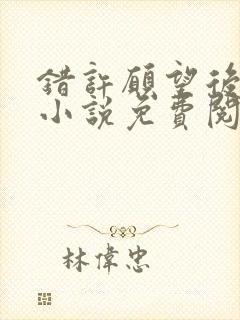 錯許願望後
小說免費閱
林偉忠